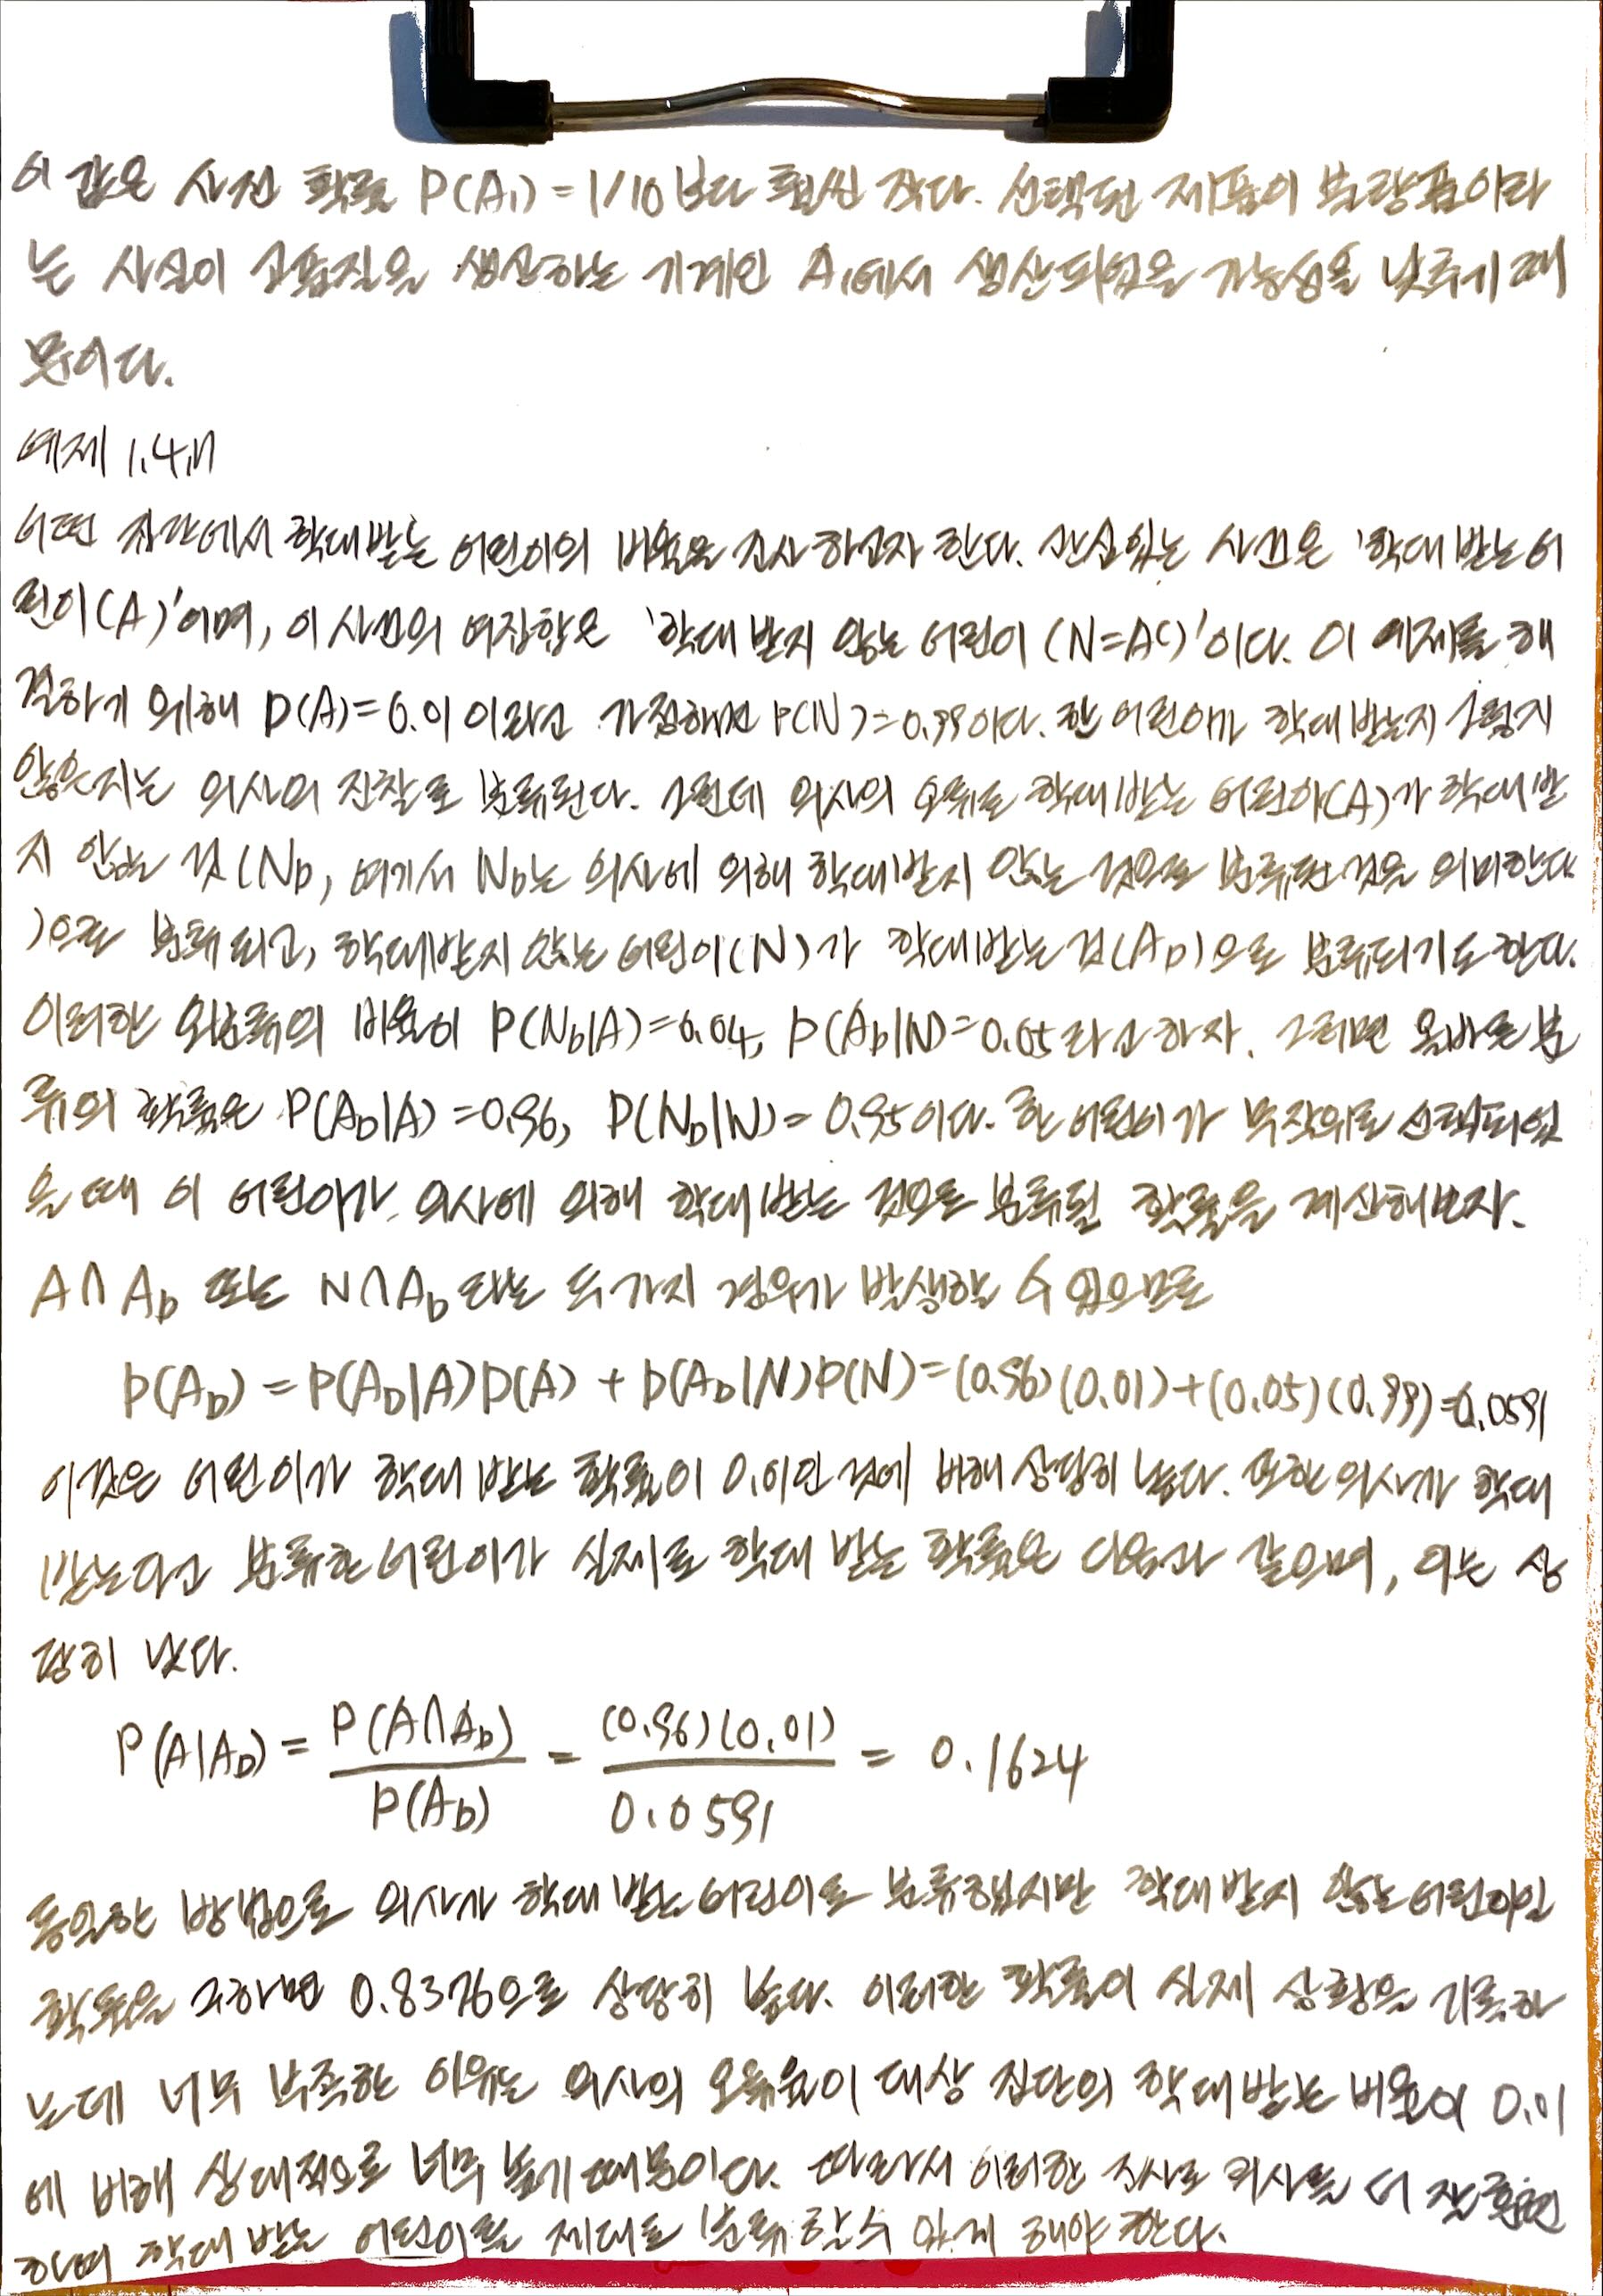 이 값은 사전 확률 P(A₁)=1/10보다 훨씬 작다. 선택된 제품이 불량품이라
는 사실이 고품질을 생산하는 기계인 A₁에서 생산되었을 가능성을 낮추기 때
문이다.
예제 1.4.11
어떤 집단에서 학대받는 어린이의 비율을 조사하고자 한다. 관심있는 사건은 '학대 받는 어
린이(A)'이며, 이 사건의 여집합은 '학대 받지 않는 어린이 (N=Aᶜ)'이다. 이 예제를 해
결하기 위해 P(A)=0.01이라고 가정하면 P(N)=0.99이다. 한 어린이가 학대 받는지 그렇지
않은지는 의사의 진찰로 분류된다. 그런데 의사의 오류로 학대받는 어린이(A)가 학대받
지 않는 것(N_D, 여기서 N_D는 의사에 의해 학대받지 않는 것으로 분류된 것을 의미한다
)으로 분류되고, 학대받지 않는 어린이(N)가 학대받는 것(A_D)으로 분류되기도 한다.
이러한 오분류의 비율이 P(N_D|A)=0.04, P(A_D|N)=0.05라고 하자. 그러면 올바른 분
류의 확률은 P(A_D|A)=0.96, P(N_D|N)=0.95이다. 한 어린이가 무작위로 선택되었
을 때 이 어린이가 의사에 의해 학대 받는 것으로 분류될 확률을 계산해보자.
A∩A_D 또는 N∩A_D라는 두 가지 경우가 발생할 수 있으므로
P(A_D) = P(A_D|A)P(A) + P(A_D|N)P(N)=(0.96)(0.01)+(0.05)(0.99)=0.0591
이것은 어린이가 학대 받는 확률이 0.01인 것에 비해 상당히 높다. 또한 의사가 학대
받는다고 분류한 어린이가 실제로 학대 받는 확률은 다음과 같으며, 이는 상
당히 낮다.
P(A|A_D) = P(A∩A_D) / P(A_D) = (0.96)(0.01) / 0.0591 = 0.1624
동일한 방법으로 의사가 학대 받는 어린이로 분류했지만 학대 받지 않는 어린이일
확률을 구하면 0.8376으로 상당히 높다. 이러한 확률이 실제 상황을 기록하
는데 너무 부족한 이유는 의사의 오류율이 대상 집단의 학대 받는 비율이 0.01
에 비해 상대적으로 너무 높기 때문이다. 따라서 이러한 조사로 의사를 더 잘 훈련
하여 학대 받는 어린이를 제대로 분류할 수 있게 해야 한다.